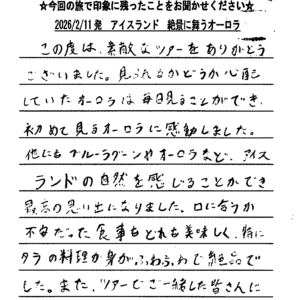 ☆今回の旅で印象に残ったことをお聞かせください☆
2026/2/11発　アイスランド　絶景に舞うオーロラ
この度は、素敵なツアーをありがとう
ございました。見られるかどうか心配
していたオーロラは毎日見ることができ、
初めて見るオーロラに感動しました。
他にもブルーラグーンやオーロラなど、アイス
ランドの自然を感じることができ
最高の思い出になりました。口に合うか
不安だった食事もどれも美味しく、特に
タラの料理が身がふわふわで絶品で
した。また、ツアーでご一緒した皆さんに